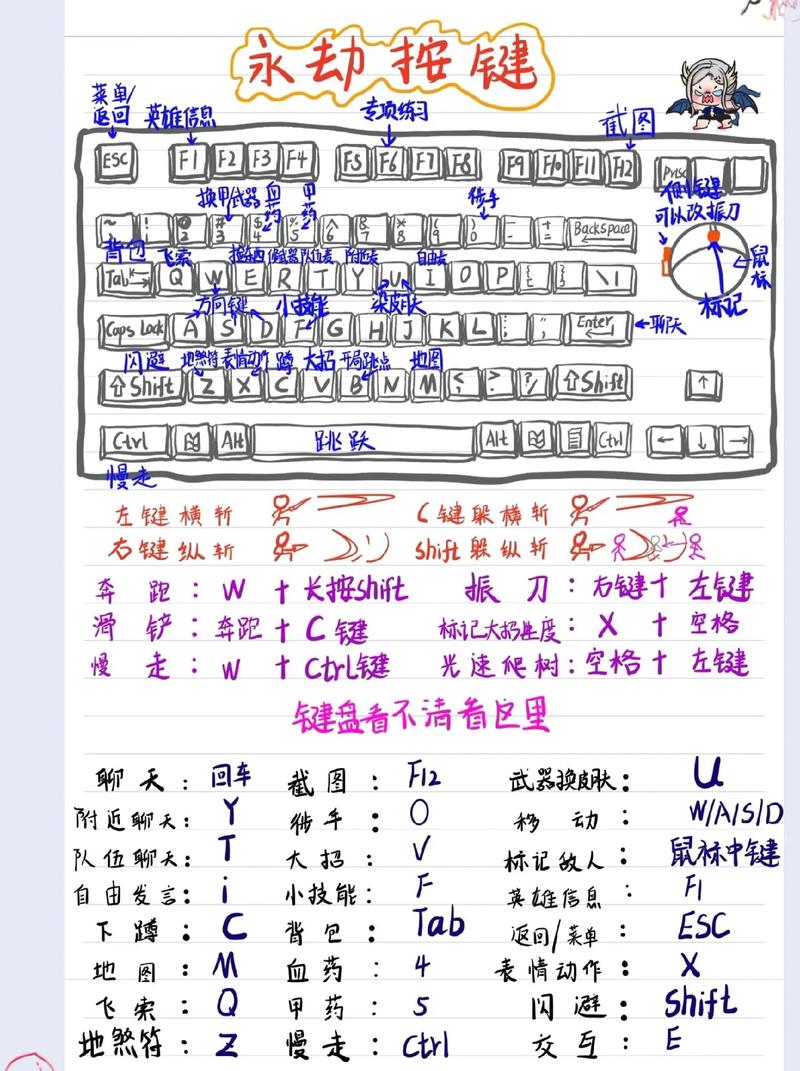 永劫按键
菜单/返回 英雄信息 专项练习 截图
ESC F1 F2 F3 F4 F5 F6 F7 F8 F9 F10 F11 F12 Prtsc
换甲 武器 血药 甲药 徒手 侧键可以改振刀
~ ! @ 2 # 3 $ 4 % 5 ^ 6 & 7 * 8 ( 9 ) 0 - + = Backspace
背包 飞索 队伍 自由 鼠标
Tab Q W E R T Y U I O P [ { ] } \ |
方向键 小技能 换皮肤 标记
Caps Lock A S D F G H J K L ; : " ' Enter 聊天
闪避 地煞符 表情动作 蹲 大招 开局跳点 地图
Shift Z X C V B N M < > ? / Shift ↑
Ctrl Alt 跳跃 Alt Ctrl ← ↓ →
慢走
左键横斩 C键躲横斩
右键纵斩 shift躲纵斩
奔跑:W+长按shift 振刀:右键+左键
滑铲:奔跑+C键 标记大招进度:X+空格
慢走:W+Ctrl键 光速爬树:空格+左键
键盘看不清看这里
聊天:回车 截图:F12 武器换皮肤:U
附近聊天:Y 徒手:0 移动:W/A/S/D
队伍聊天:T 大招:V 标记敌人:鼠标中键
自由发言:i 小技能:F 英雄信息:F1
下蹲:C 背包:Tab 返回/菜单:ESC
地图:M 血药:4 表情动作:X
飞索:Q 甲药:5 闪避:Shift
地煞符:Z 慢走:Ctrl 交互:E